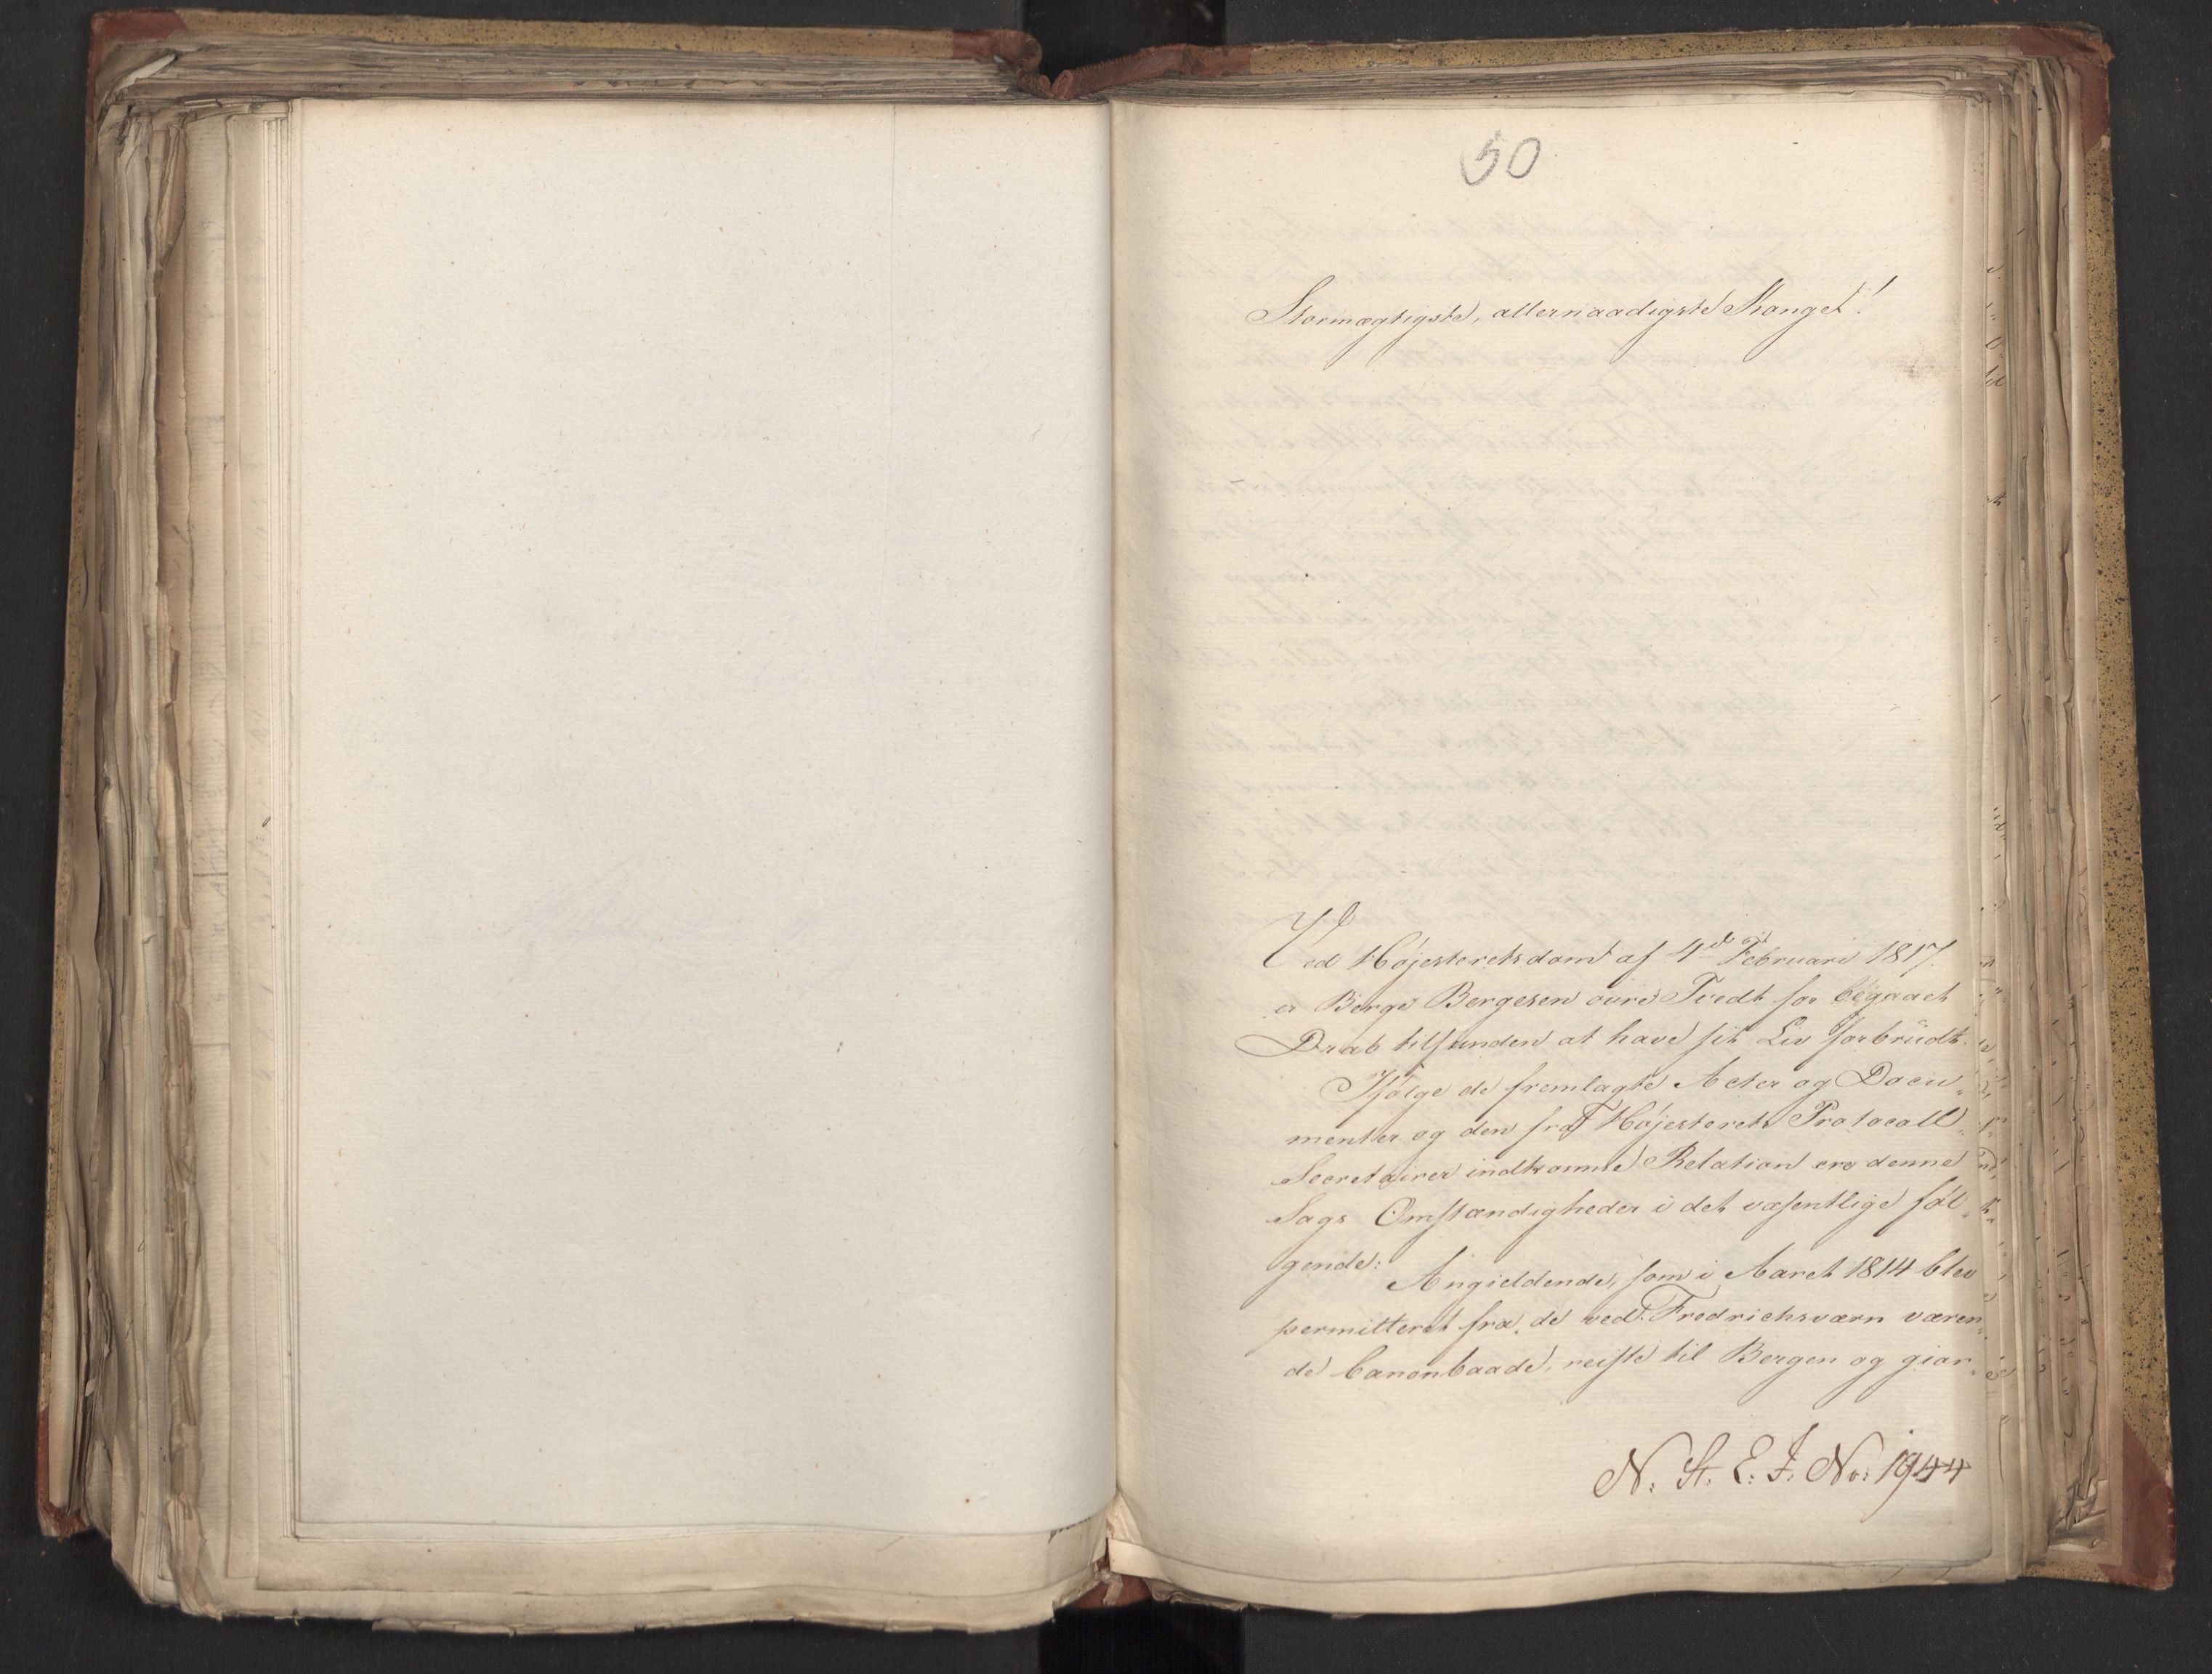 50
Stormægtigste, allernaadigste Konge!
Ved Høiesteretsdom af 4de Februari 1817.
er Børge Børgesen øvre Tvedt for begaaet
Drab tilfunden at have sit Liv forbrüdt.
Ifølge de fremlagte Acter og Docu„
menter og den fra Høiesterets Protocoll„
Secretairer indkomne Relation ere denne
Sags Omstændigheder i det væsentlige føl„
gende:
Angieldende, som i Aaret 1814 blev
permitteret fra de ved Fredrichsværn væren„
de Canonbaade, reiste til Bergen og gior„
N. St. E. J. No: 1944